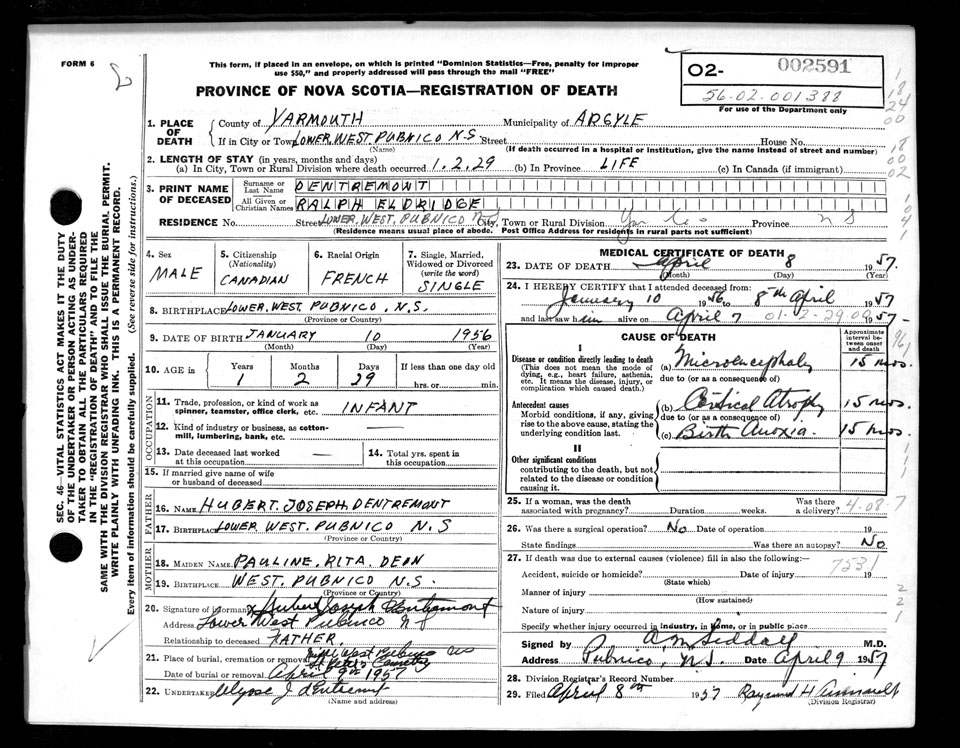 FORM 6
This form, if placed in an envelope, on which is printed "Dominion Statistics—Free, penalty for improper
use $50," and properly addressed will pass through the mail "FREE"
PROVINCE OF NOVA SCOTIA—REGISTRATION OF DEATH
O2- 002591
56.02.001388
For use of the Department only
SEC. 46—VITAL STATISTICS ACT MAKES IT THE DUTY
OF THE UNDERTAKER OR PERSON ACTING AS UNDER-
TAKER TO OBTAIN ALL THE PARTICULARS REQUIRED
IN THE "REGISTRATION OF DEATH" AND TO FILE THE
SAME WITH THE DIVISION REGISTRAR WHO SHALL ISSUE THE BURIAL PERMIT.
WRITE PLAINLY WITH UNFADING INK. THIS IS A PERMANENT RECORD.
Every item of information should be carefully supplied. (See reverse side for instructions.)
1. PLACE OF DEATH
County of YARMOUTH Municipality of ARGYLE
If in City or Town LOWER, WEST, PUBNICO N.S. Street House No.
(Name) (If death occurred in a hospital or institution, give the name instead of street and number)
2. LENGTH OF STAY (in years, months and days)
(a) In City, Town or Rural Division where death occurred 1.2.29 (b) In Province LIFE (c) In Canada (if immigrant)
3. PRINT NAME OF DECEASED
Surname or Last Name DENTREMONT
All Given or Christian Names RALPH ELDRIDGE
RESIDENCE No. Street LOWER, WEST, PUBNICO City, Town or Rural Division Yar Co Province N S
(Residence means usual place of abode. Post Office Address for residents in rural parts not sufficient)
4. Sex MALE
5. Citizenship (Nationality) CANADIAN
6. Racial Origin FRENCH
7. Single, Married, Widowed or Divorced (write the word) SINGLE
8. BIRTHPLACE LOWER, WEST, PUBNICO, N.S.
(Province or Country)
9. DATE OF BIRTH JANUARY 10 1956
(Month) (Day) (Year)
10. AGE in Years 1 Months 2 Days 29 If less than one day old hrs. or min.
OCCUPATION
11. Trade, profession, or kind of work as spinner, teamster, office clerk, etc. INFANT
12. Kind of industry or business, as cotton-mill, lumbering, bank, etc. —
13. Date deceased last worked at this occupation —
14. Total yrs. spent in this occupation
15. If married give name of wife or husband of deceased
FATHER
16. NAME HUBERT. JOSEPH. DENTREMONT
17. BIRTHPLACE LOWER. WEST. PUBNICO N.S
(Province or Country)
MOTHER
18. MAIDEN NAME PAULINE. RITA. DEON
19. BIRTHPLACE WEST. PUBNICO N.S.
(Province or Country)
20. Signature of informant x Hubert Joseph dEntremont
Address Lower West Pubnico N S
Relationship to deceased FATHER.
21. Place of burial, cremation or removal West Pubnico NS
St Peter's Cemetery
Date of burial or removal April 9th 1957
22. UNDERTAKER Ulysse J d'Entremont
(Name and address)
MEDICAL CERTIFICATE OF DEATH
23. DATE OF DEATH April 8 1957.
(Month) (Day) (Year)
24. I HEREBY CERTIFY that I attended deceased from:
January 10 1956 to 8th April 1957
and last saw him alive on April 7 01-2-29-09 1957-
CAUSE OF DEATH
Approximate interval between onset and death
I
Disease or condition directly leading to death
(This does not mean the mode of dying, e.g., heart failure, asthenia, etc. It means the disease, injury, or complication which caused death.)
(a) Microencephaly 15 mos.
due to (or as a consequence of)
Antecedent causes
Morbid conditions, if any, giving rise to the above cause, stating the underlying condition last.
(b) Cortical Atrophy 15 mos.
due to (or as a consequence of)
(c) Birth Anoxia 15 mos.
II
Other significant conditions
contributing to the death, but not related to the disease or condition causing it.
25. If a woman, was the death associated with pregnancy? Duration weeks. Was there a delivery? 4-08 7
26. Was there a surgical operation? No Date of operation 19
State findings Was there an autopsy? No
27. If death was due to external causes (violence) fill in also the following:—
7531
Accident, suicide or homicide? Date of injury 19
(State which)
Manner of injury
(How sustained)
Nature of injury
Specify whether injury occurred in industry, in home, or in public place
Signed by A M Siddall M.D.
Address Pubnico, N.S. Date April 9 1957
28. Division Registrar's Record Number
29. Filed April 8th 1957 Raymond H
(Division Registrar)